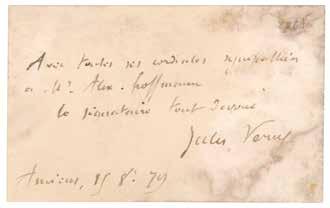 Avec toutes ses cordiales sympathies
à Mr. Alex. Hoffmann
le signataire tout dévoué
Jules Verne
Amiens, 15 8e 79